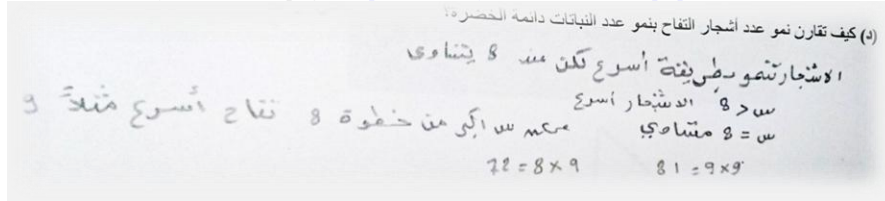 (د) كيف تقارن نمو عدد أشجار التفاح بنمو عدد النباتات دائمة الخضرة؟
الاشجار تنمو بطريقة أسرع لكن عند 8 يتساوى
س > 8 الاشجار أسرع
س = 8 متساوي س اكبر من خطوة 8 تفاح أسرع مثلاً 9
9×9 = 81 9×8 = 72